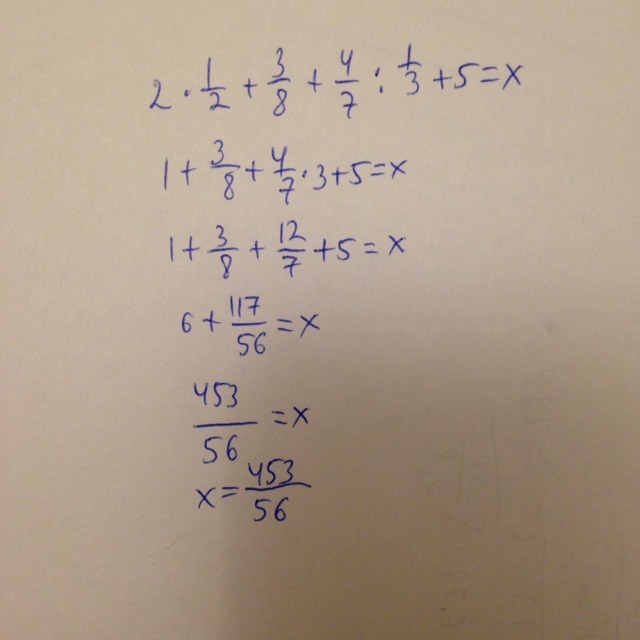 2 · 1/2 + 3/8 + 4/7 : 1/3 + 5 = x
1 + 3/8 + 4/7 · 3 + 5 = x
1 + 3/8 + 12/7 + 5 = x
6 + 117/56 = x
453/56 = x
x = 453/56